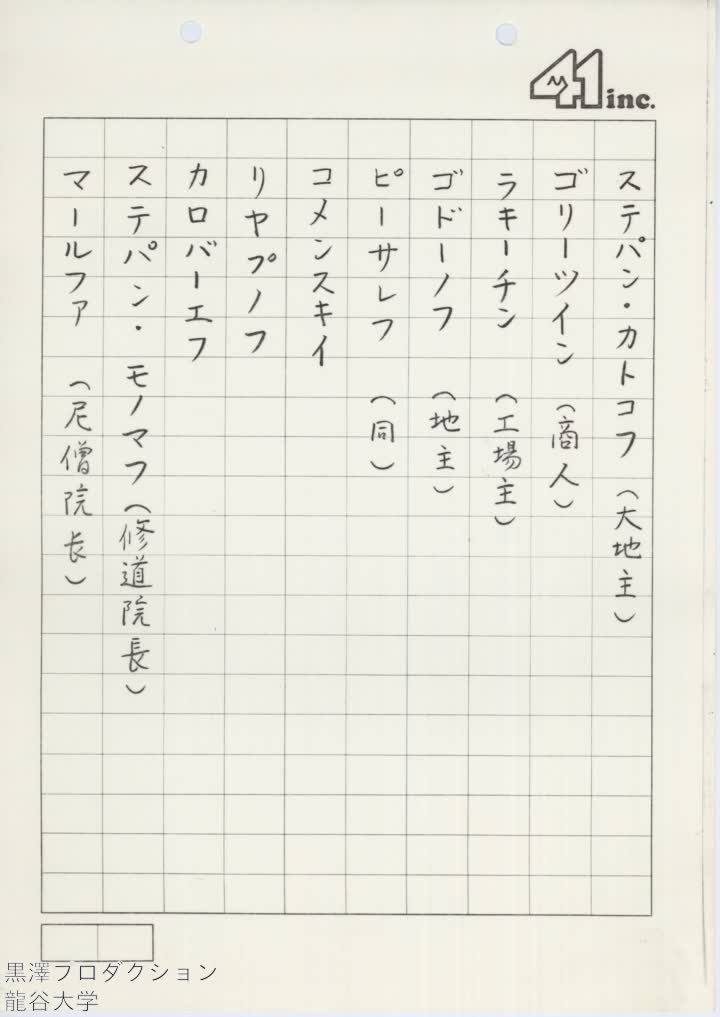 41 inc.
ステパン・カトコフ（大地主）
ゴリーツイン（商人）
ラキーチン（工場主）
ゴドーノフ（地主）
ピーサレフ（同）
コメンスキイ
リヤプノフ
カロバーエフ
ステパン・モノマフ（修道院長）
マールファ（尼僧院長）
黒澤プロダクション
龍谷大学